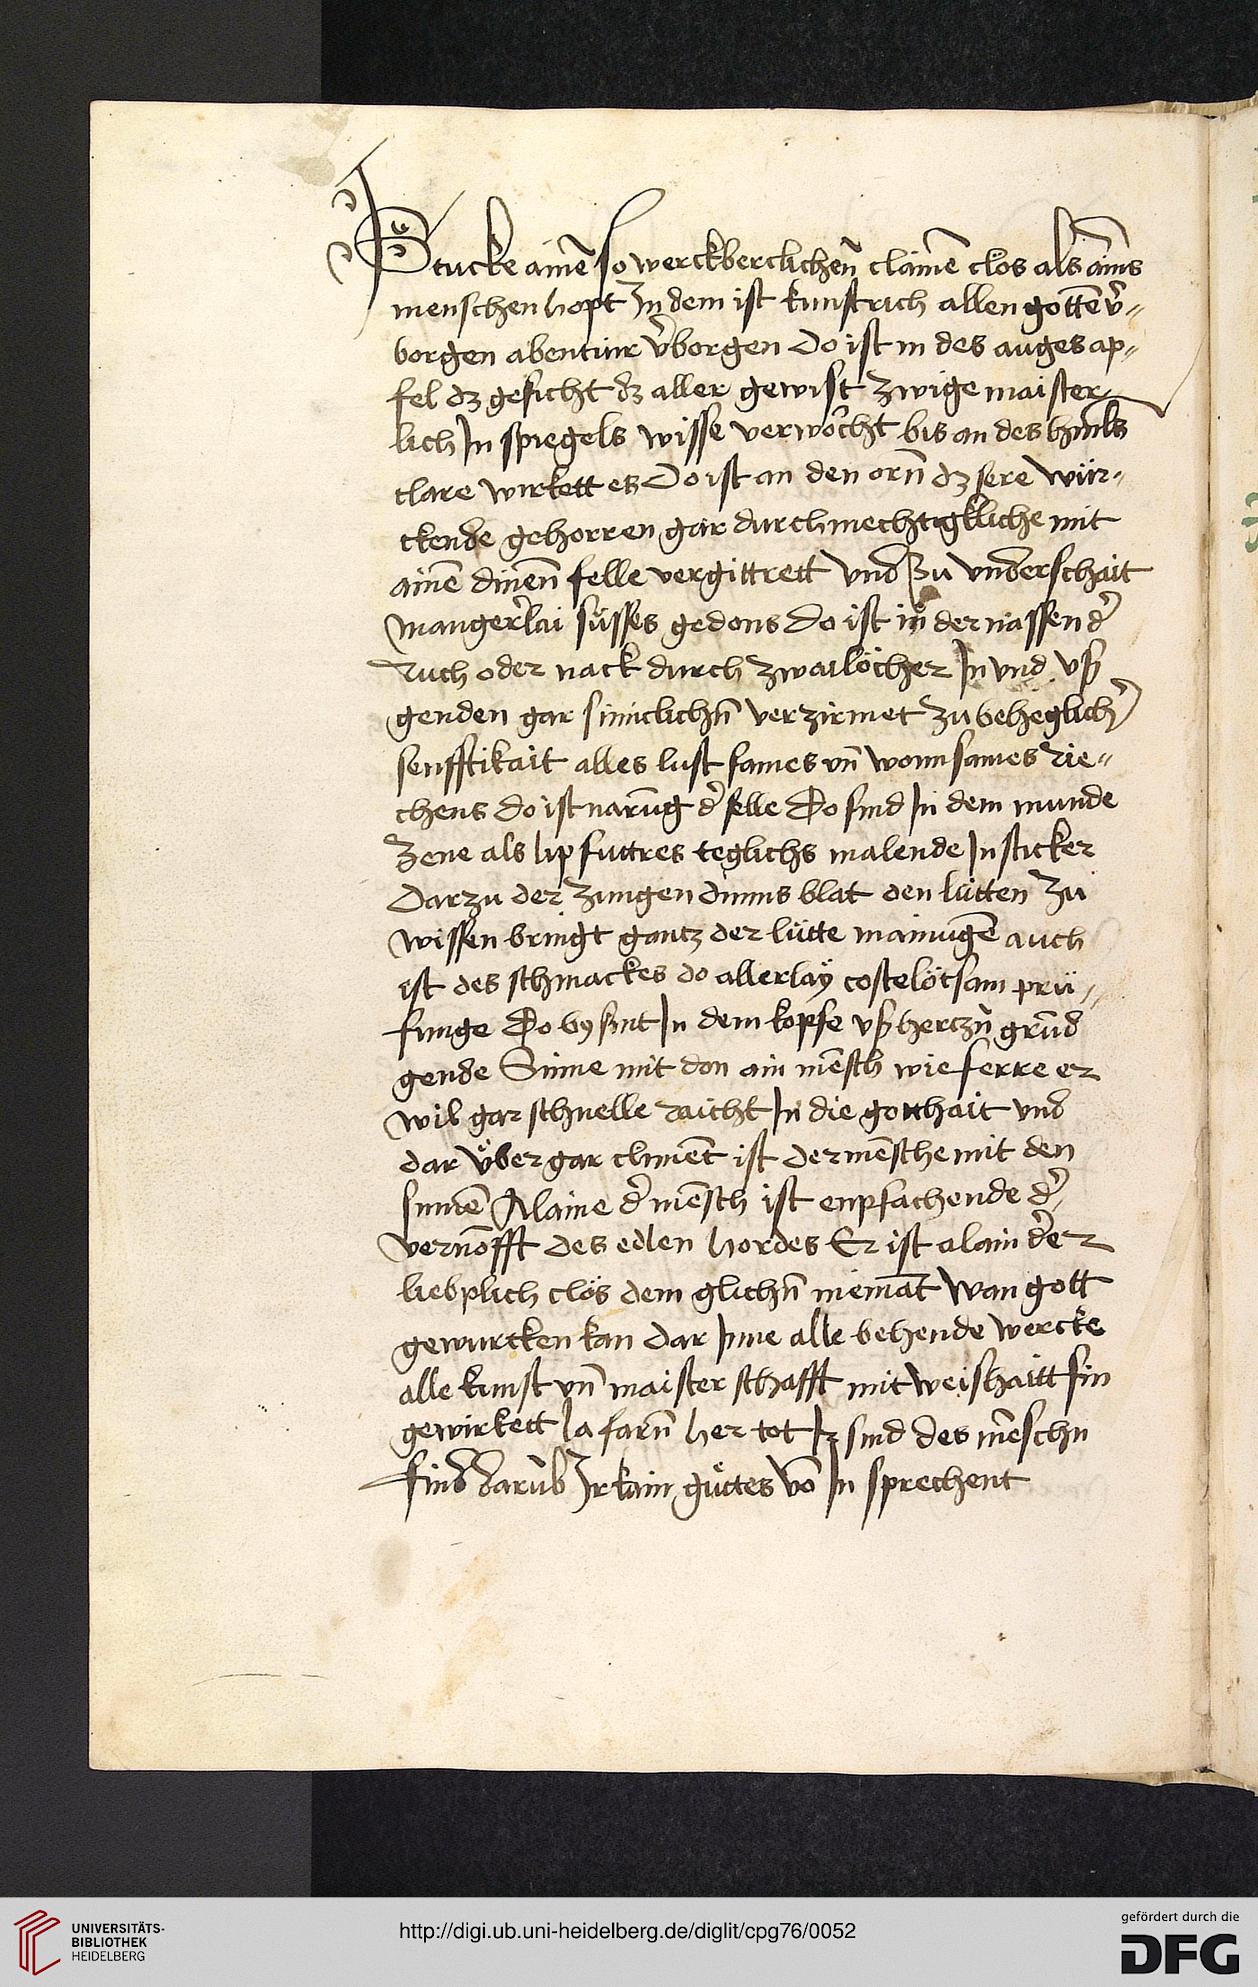 Stucke ainē so werckberclichenn̄ clainē clos als ains
menschen hopt In dem ist kunstrich allen gottē v̄-
borgen abentuir v̄borgen Do ist in des auges ap-
fel dz gesicht dz aller gewist zwige maister-
lich In spiegels wisse verwörcht bis an des himls
clare wirkett es Do ist an den orn̄ dz sere wür-
ckende gehorren gar durchmechtigkliche mit
ainē dinen̄ felle vergittrett vnd zu vnderschait
mangerlai süsses gedons Do ist in der nassen d̄
ruch oder nack durch zwai löcher In vnd vß
genden gar sinniclichn̄ verzirmet zu beheglich̄
senfftikait alles lust sames vn̄ wonnsames rie-
chens do ist narūg d̄ selle Do sind In dem munde
Zene als lip futtres teglichs malende In sticker
Darzu der zungen dinns blat den lütten zu
wissen bringt gantz der lütte mainugē auch
ist des schmackes do allerlaÿ costelötsam prü-
funge Do by sint In dem kopfe vß hertzn̄ grūd
gende Sinne mit don ain mēsch wie ferre er
wil gar schnelle raicht In die gotthait vnd
dar über gar climēt ist der mēsche mit den
sinnē Alaine d̄ mēsch ist enpfachende d̄
vernōfft des edlen hordes Er ist alain der
lieblich clös dem glichn̄ niemāt wan gott
gewurcken kan dar Inne alle behende wercke
alle kunst vn̄ maister schafft mit weishaitt sin
gewirkett la farn̄ her tot Ir sind des mēschn
find darūb Ir kain güttes vō In sprechent
UNIVERSITÄTS-
BIBLIOTHEK
HEIDELBERG
http://digi.ub.uni-heidelberg.de/diglit/cpg76/0052
gefördert durch die
DFG